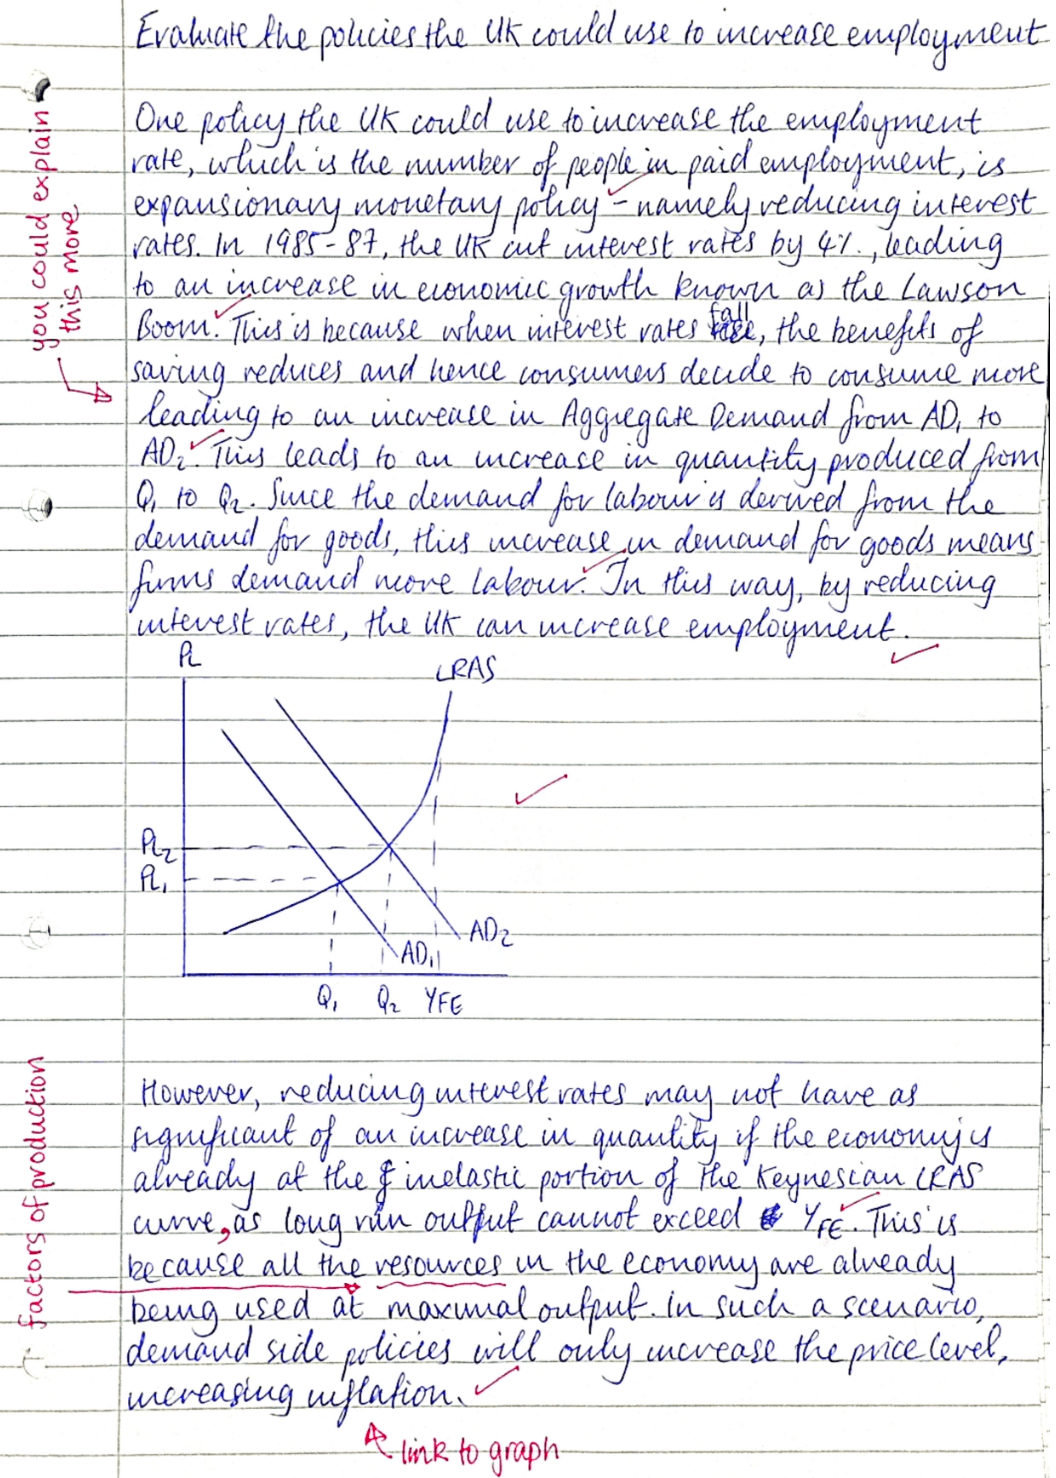 Evaluate the policies the UK could use to increase employment
you could explain
this more
One policy the UK could use to increase the employment
rate, which is the number of people in paid employment, is
expansionary monetary policy – namely reducing interest
rates. In 1985-87, the UK cut interest rates by 4%, leading
to an increase in economic growth known as the Lawson
Boom. This is because when interest rates fall, the benefits of
saving reduces and hence consumers decide to consume more
leading to an increase in Aggregate Demand from AD1 to
AD2. This leads to an increase in quantity produced from
Q1 to Q2. Since the demand for labour is derived from the
demand for goods, this increase in demand for goods means
firms demand more labour. In this way, by reducing
interest rates, the UK can increase employment.
PL
LRAS
PL2
PL1
AD2
AD1
Q1 Q2 YFE
factors of production
However, reducing interest rates may not have as
significant of an increase in quantity if the economy is
already at the inelastic portion of the Keynesian LRAS
curve, as long run output cannot exceed YFE. This is
because all the resources in the economy are already
being used at maximal output. In such a scenario,
demand side policies will only increase the price level,
increasing inflation.
link to graph